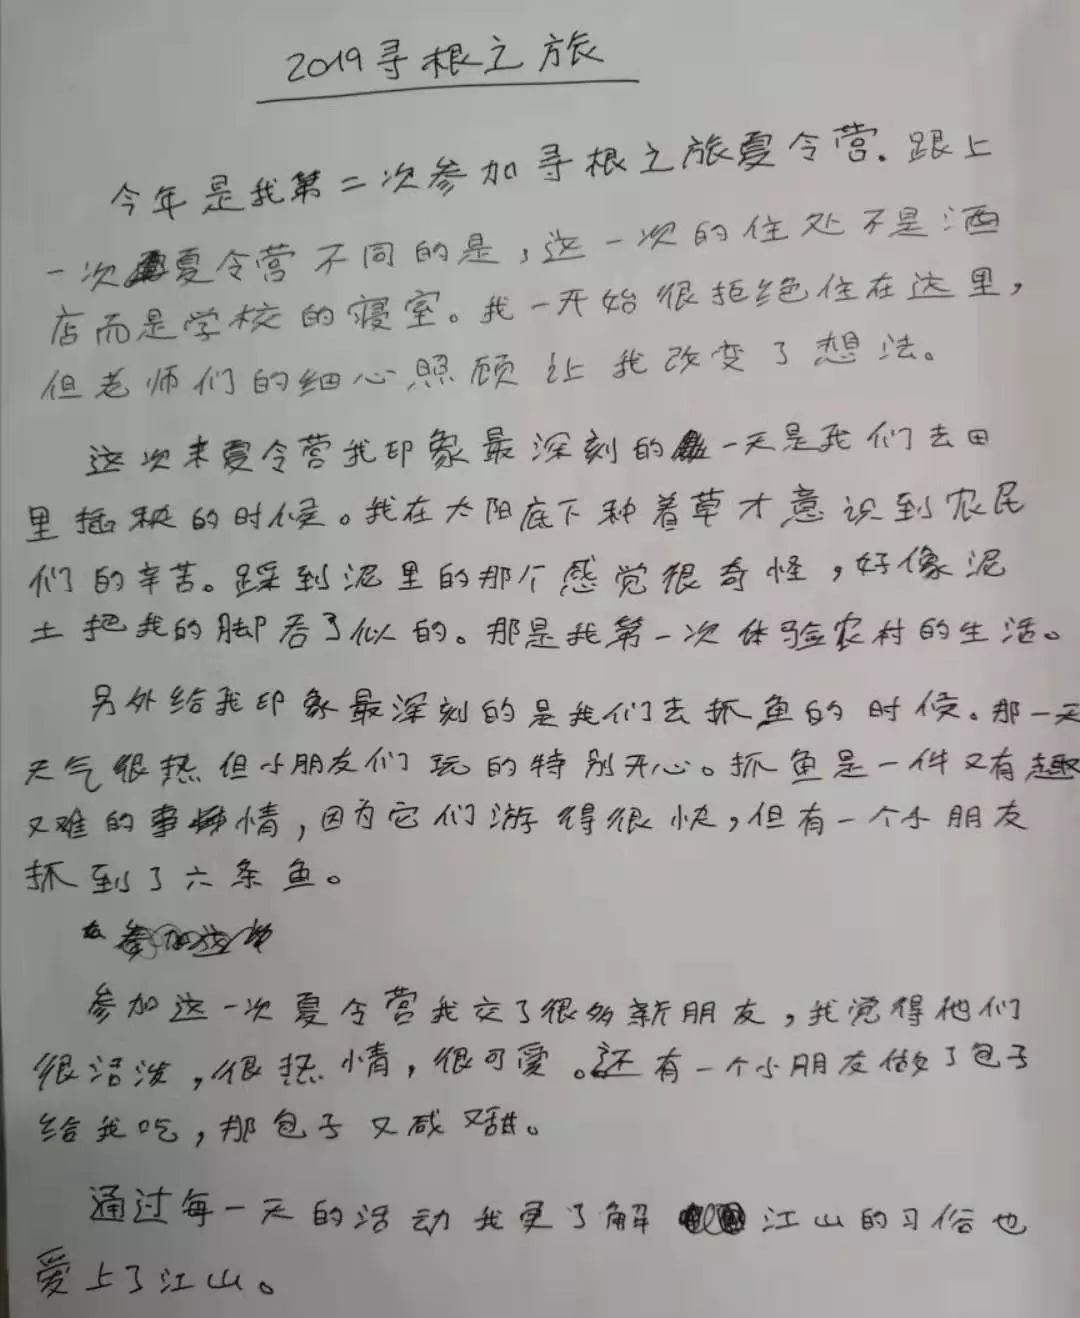 2019寻根之旅
今年是我第二次参加寻根之旅夏令营. 跟上
一次夏令营不同的是，这一次的住处不是酒
店而是学校的寝室。我一开始很拒绝住在这里，
但老师们的细心照顾让我改变了想法。
这次来夏令营我印象最深刻的一天是我们去田
里插秧的时候。我在太阳底下种着草才意识到农民
们的辛苦。踩到泥里的那个感觉很奇怪，好像泥
土把我的脚吞了似的。那是我第一次体验农村的生活。
另外给我印象最深刻的是我们去抓鱼的时候。那一天
天气很热但小朋友们玩的特别开心。抓鱼是一件又有趣
又难的事情，因为它们游得很快，但有一个小朋友
抓到了六条鱼。
参加这一次夏令营我交了很多新朋友，我觉得他们
很活泼，很热情，很可爱。还有一个小朋友做了包子
给我吃，那包子又咸又甜。
通过每一天的活动我更了解江山的习俗也
爱上了江山。